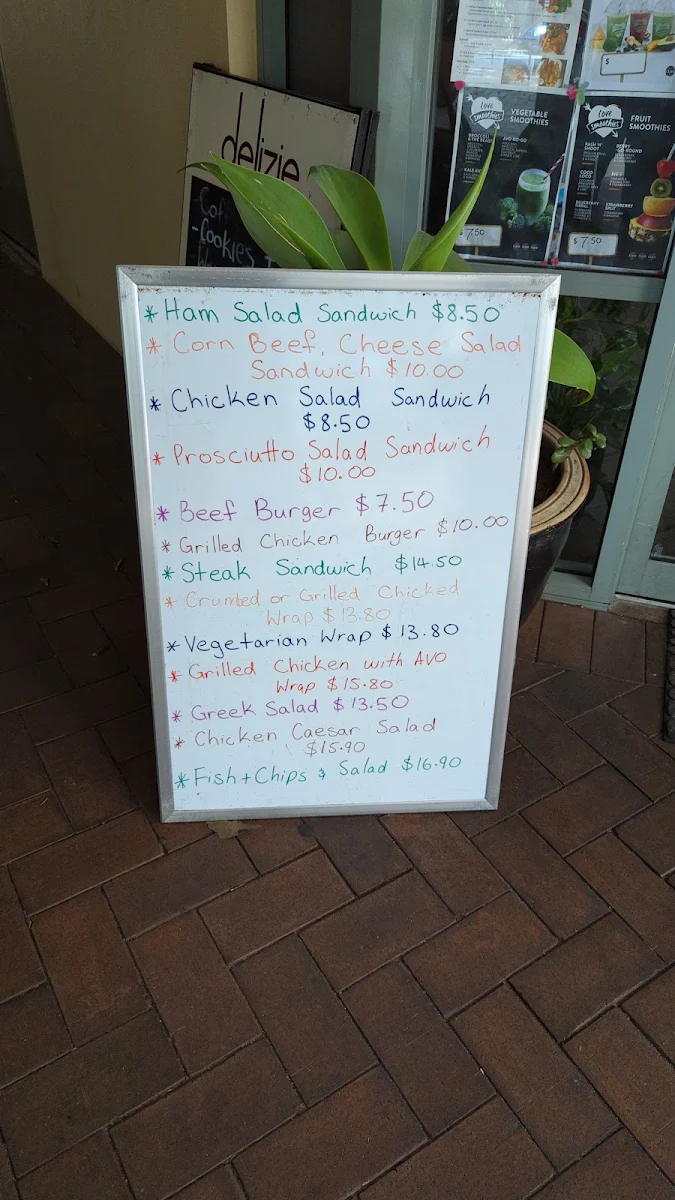 delizie
Cookies
Love
smoothies
VEGETABLE
SMOOTHIES
$7.50
Love
smoothies
FRUIT
SMOOTHIES
$7.50
* Ham Salad Sandwich $8.50
* Corn Beef, Cheese Salad
Sandwich $10.00
* Chicken Salad Sandwich
$8.50
* Prosciutto Salad Sandwich
$10.00
* Beef Burger $7.50
* Grilled Chicken Burger $10.00
* Steak Sandwich $14.50
* Crumbed or Grilled Chicked
Wrap $13.80
* Vegetarian Wrap $13.80
* Grilled Chicken with AVO
Wrap $15.80
* Greek Salad $13.50
* Chicken Caesar Salad
$15.90
* Fish + Chips & Salad $16.90